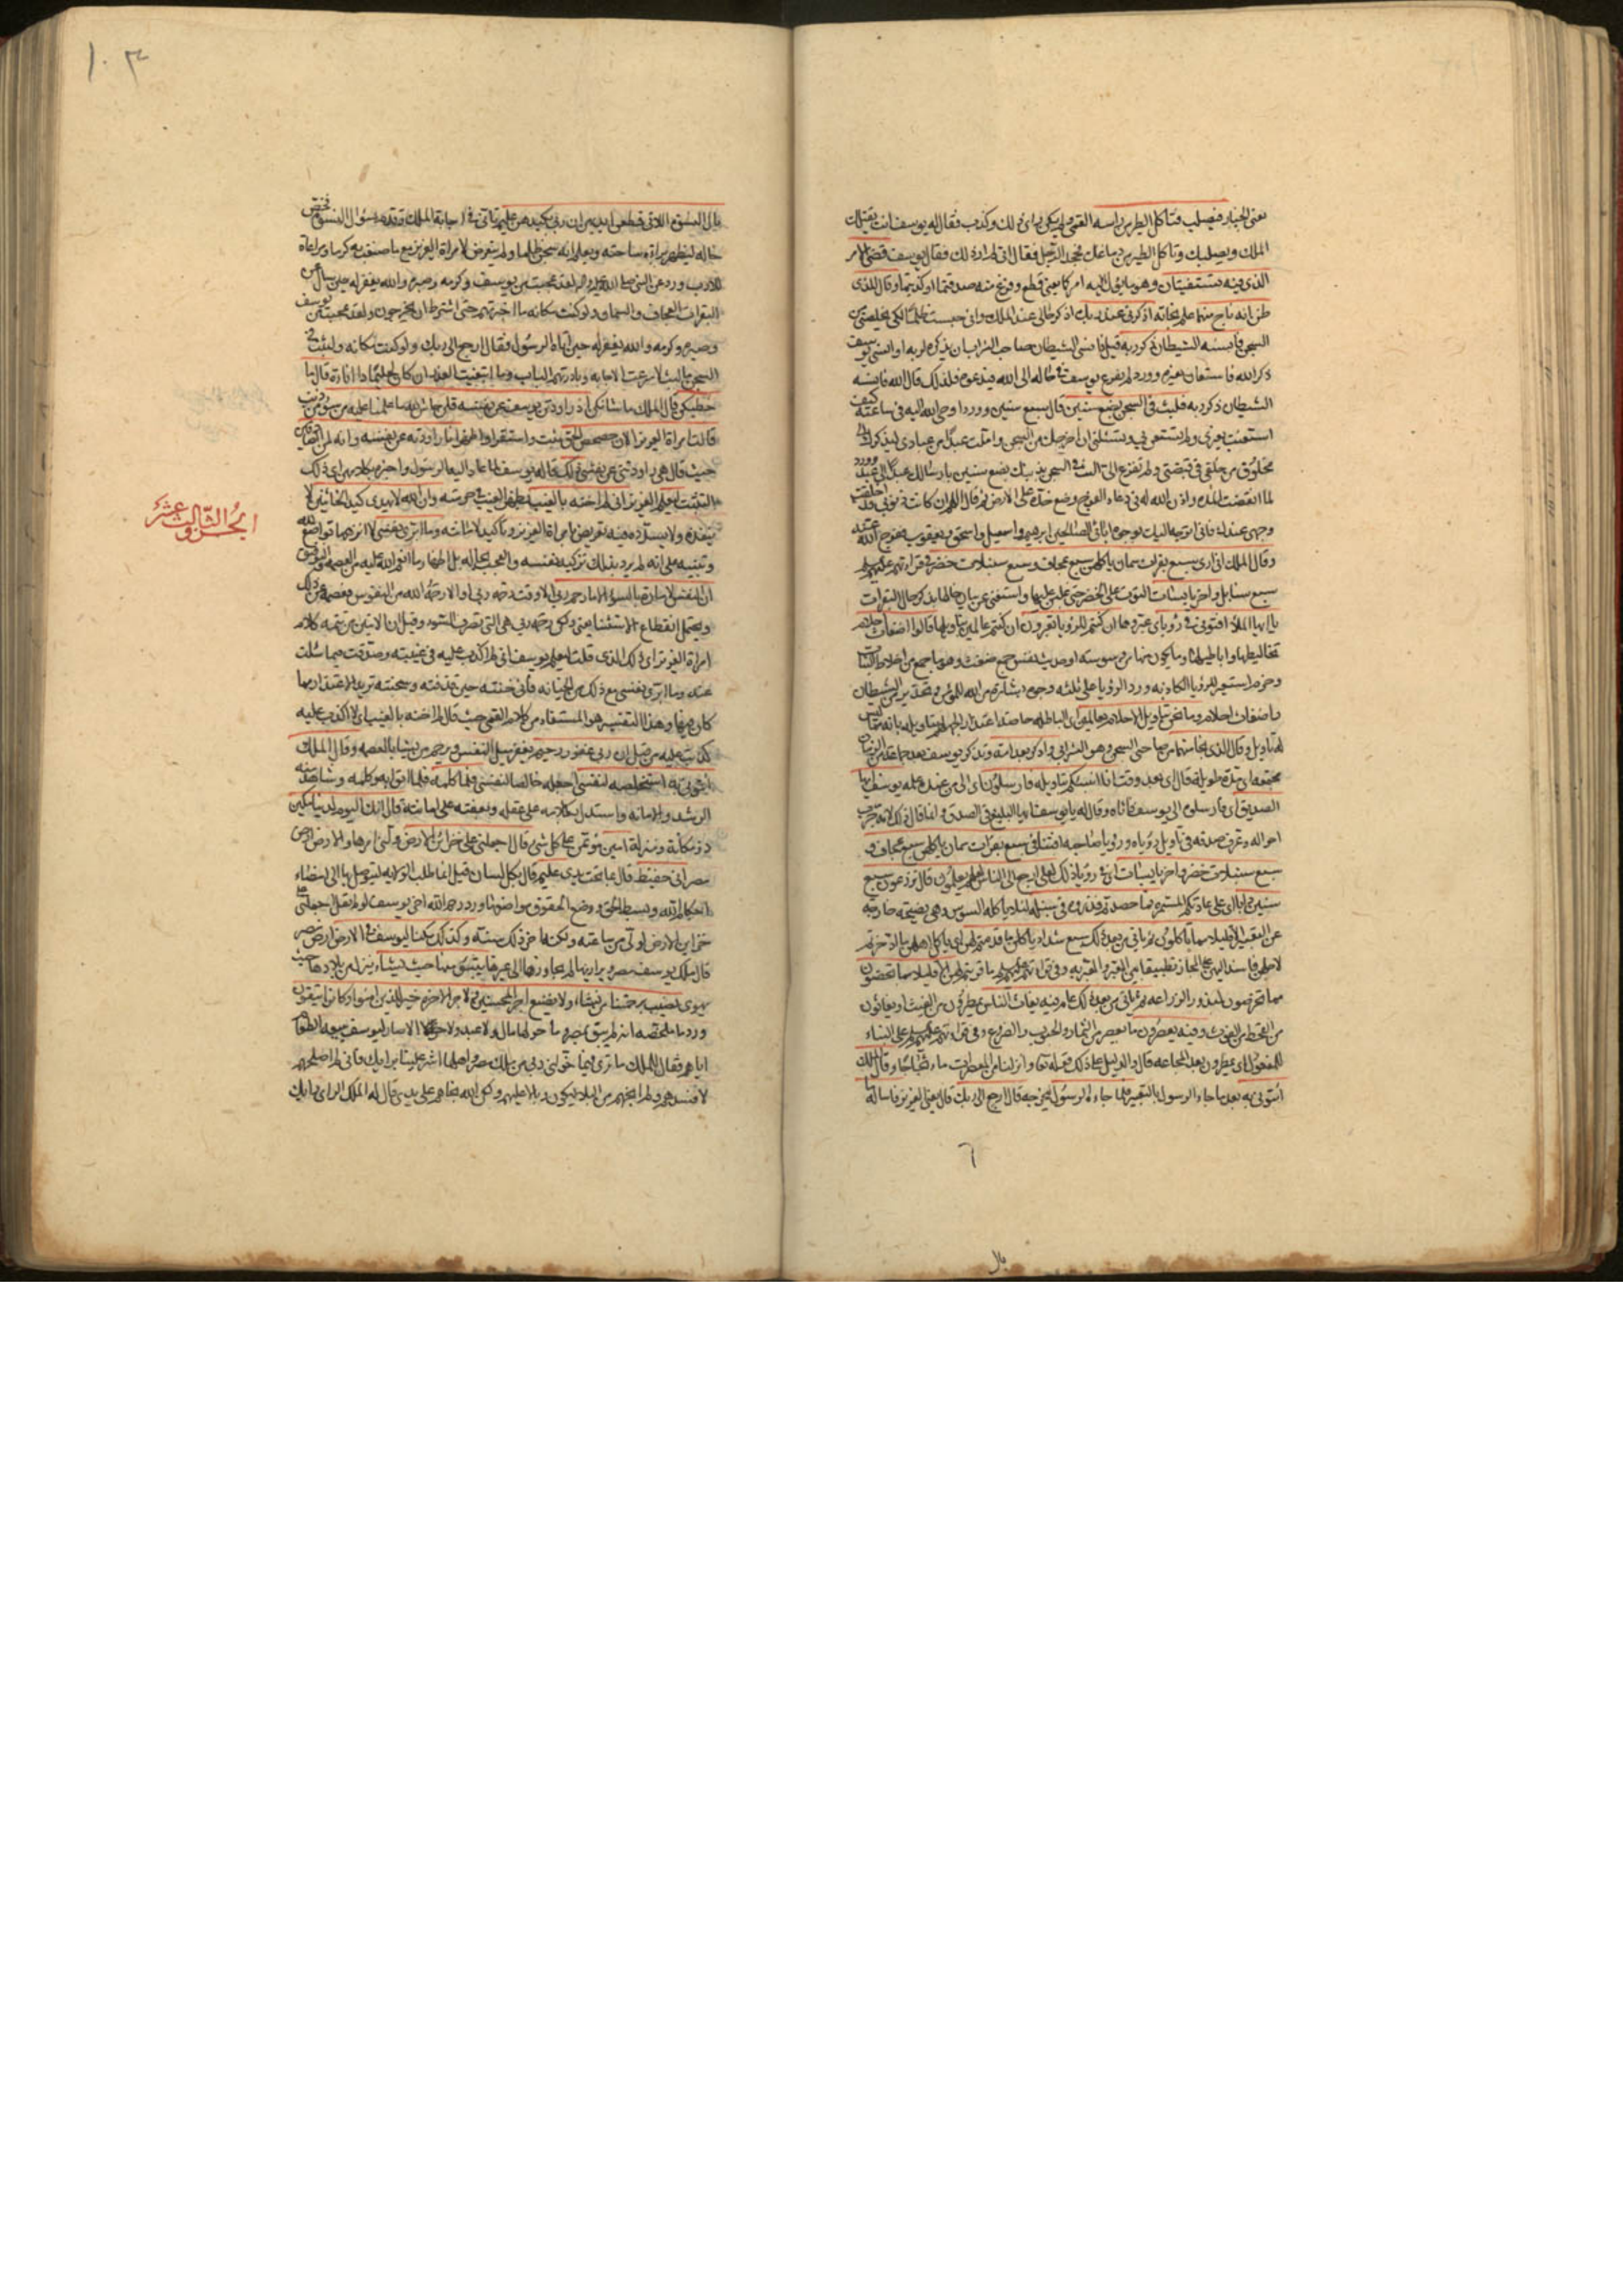 يعنى الخباز فيصلب فتأكل الطير من راسه القمى ولم يكن راى ذلك وكذب فقال له يوسف انت يقتلك
الملك ويصلبك وتأكل الطير من دماغك فجحد الرجل فقال انى لم ار ذلك فقال يوسف قضى الامر
الذى فيه تستفتيان وهو ما يؤل اليه امركما يعنى قطع وفرغ منه صدقتما او كذبتما وقال للذى
ظن انه ناج منهما علم نجاته اذكرنى عند ربك اذكر حالى عند الملك وانى حبست ظلما لكى يخلصنى من
السجن فأنسيه الشيطان ذكر ربه قيل فانسى الشيطان صاحب الشراب ان يذكره لربه او انسى يوسف
ذكر الله فاستعان بغيره وورد لم يفزع يوسف فى حاله الى الله فيدعوه فلذلك قال الله فانسيه
الشيطان ذكر ربه فلبث فى السجن بضع سنين قال سبع سنين وورد اوحى الله اليه فى ساعته كيف
استغثت بغيرى ولم تستغث بى وتسئلنى ان اخرجك من السجن واملت عبدا من عبادى ليذكرك الى
مخلوق من خلقى فى قبضتى ولم تفزع الى البث فى السجن بذنبك بضع سنين بارسالك عبدا الى عبد وورد
لما انقضت المدة واذن الله له فى دعاء الفرج وضع خده على الارض ثم قال اللهم ان كانت ذنوبى قد اخلقت
وجهى عندك فانى اتوجه اليك بوجوه ابائى الصالحين ابرهيم واسمعيل واسحق ويعقوب ففرج الله عنه
وقال الملك انى ارى سبع بقرات سمان ياكلهن سبع عجاف وسبع سنبلات خضر فى قراءتهم عليهم السلم
سبع سنابل واخر يابسات التوت على الخضر حتى غلبن عليها واستغنى عن بيان حالها بذكر حال البقرات
يا ايها الملأ افتونى فى رؤياى عبروها ان كنتم للرؤيا تعبرون ان كنتم عالمين بتاويلها قالوا اضغاث احلام
تخاليطها واباطيلها وما يكون منها من وسوسة او حديث نفس جمع ضغث وهو ما جمع من اخلاط النبات
وحزم استعير للرؤيا الكاذبة وورد الرؤيا على ثلثة وجوه بشارة من الله للمؤمن وتحذير من الشيطان
واضغاث احلام وما نحن بتاويل الاحلام بعالمين
وقال الذى نجا منهما من صاحبى السجن وهو الشرابى وادكر بعد امة وتذكر يوسف بعد جماعة من الزمان
مجتمعة اى مدة طويلة قال اى بعد وقت انا انبئكم بتاويله فارسلون اى الى من عنده علمه يوسف ايها
الصديق اى فارسلوه الى يوسف فاتاه وقال له يا يوسف يا ايها البليغ فى الصدق وانما قال ذلك لانه جرب
احواله وعرف صدقه فى تاويل رؤياه ورؤيا صاحبه افتنا فى سبع بقرات سمان ياكلهن سبع عجاف و
سبع سنبلات خضر واخر يابسات اى فى رؤيا ذلك لعلى ارجع الى الناس لعلهم يعلمون قال تزرعون سبع
سنين دأبا اى على عادتكم المستمرة فما حصدتم فذروه فى سنبله لئلا ياكله السوس وهى نصيحة خارجة
عن التعبير الا قليلا مما تاكلون ثم ياتى من بعد ذلك سبع شداد ياكلن ما قدمتم لهن اى ياكل اهلهن ما ادخرتم
لاجلهن فاسند اليهن على المجاز تطبيقا بين المعبر والمعبر به وفى قراءتهم عليهم السلم ما قربتم لهن الا قليلا مما تحصنون
مما تحرزون لبذور الزراعة ثم ياتى من بعد ذلك عام فيه يغاث الناس يمطرون من الغيث او يغاثون
من القحط من الغوث وفيه يعصرون ما يعصر من الثمار والحبوب والضروع وفى قراءتهم عليهم السلم على البناء
للمفعول اى يمطرون بعد المجاعة قال والدليل على ذلك قوله تعالى وانزلنا من المعصرات ماء ثجاجا وقال الملك
ائتونى به بعد ما جاء الرسول بالتعبير فلما جاءه الرسول ليخرجه قال ارجع الى ربك قال يعنى العزيز فاساله ما
بال
بال النسوة اللاتى قطعن ايديهن ان ربى بكيدهن عليم تأنى فى اجابة الملك وقدم سؤال النسوة وفحص
حاله ليظهر براءة ساحته ويعلم انه سجن ظلما ولم يتعرض لامراة العزيز مع ما صنعت به كرما ومراعاة
للادب وورد عن النبى صلى الله عليه واله لقد عجبت من يوسف وكرمه وصبره والله يغفر له حين سئل عن
البقرات العجاف والسمان ولو كنت مكانه ما اخبرتهم حتى اشترط ان يخرجونى ولقد عجبت من يوسف
وصبره وكرمه والله يغفر له حين اتاه الرسول فقال ارجع الى ربك ولو كنت مكانه ولبثت فى
السجن ما لبث لاسرعت الاجابة وبادرتهم الباب وما ابتغيت العذر ان كان لحليما ذا اناءة قال ما
خطبكن قال الملك ما شانكن اذ راودتن يوسف عن نفسه قلن حاش لله ما علمنا عليه من سوء من ذنب
قالت امراة العزيز الان حصحص الحق ثبت واستقر او ظهر انا راودته عن نفسه وانه لمن الصادقين
حيث قال هى راودتنى عن نفسى ذلك قاله يوسف لما عاد اليه الرسول واخبره بكلامهن اى ذلك
التثبت ليعلم العزيز انى لم اخنه بالغيب بظهر الغيب فى حرمته وان الله لا يهدى كيد الخائنين لا
ينفذه ولا يسدده فيه تعريض بامراة العزيز وتاكيد لامانته وما ابرئ نفسى لا انزهها تواضع لله
وتنبيه على انه لم يرد بذلك تزكية نفسه والعجب بحاله بل اظهار ما انعم الله عليه من العصمة والتوفيق
ان النفس لامارة بالسوء الا ما رحم ربى الا وقت رحمة ربى او الا ما رحمه الله من النفوس فعصمه عن ذلك
ويحتمل انقطاع الاستثناء يعنى ولكن رحمة ربى هى التى تصرف السوء وقيل ان الايتين من تتمة كلام
امراة العزيز اى ذلك الذى قلت ليعلم يوسف انى لم اكذب عليه فى غيبته وصدقت فيما سئلت
عنه وما ابرئ نفسى مع ذلك من الخيانة فانى خنته حين قذفته وسجنته تريد الاعتذار مما
كان فيها وهذا التفسير هو المستفاد من كلام القمى حيث قال لم اخنه بالغيب اى لا اكذب عليه
كما كذبت عليه من قبل ان ربى غفور رحيم يغفر ميل النفس ويرحم من يشاء بالعصمة وقال الملك
ائتونى به استخلصه لنفسى اجعله خالصا لنفسى فلما كلمه فلما اتوا به وكلمه وشاهد منه
الرشد والامانة واستدل بكلامه على عقله وبعفته على امانته قال انك اليوم لدينا مكين
ذو مكانة ومنزلة امين مؤتمن على كل شىء قال اجعلنى على خزائن الارض ولنى امرها والارض ارض
مصر انى حفيظ قال بما تحت يدى عليم قال بكل لسان قيل انما طلب الولاية ليتوصل بها الى امضاء
احكام الله وبسط الحق ووضع الحقوق مواضعها وورد رحم الله اخى يوسف لو لم يقل اجعلنى على
خزاين الارض لولى من ساعته ولكنه اخر ذلك سنة وكذلك مكنا ليوسف فى الارض ارض مصر
قال ملك يوسف مصر وبراريها لم يجاوزها الى غيرها يتبوء منها حيث يشاء ينزل من بلادها حيث
يهوى نصيب برحمتنا من نشاء ولا نضيع اجر المحسنين ولاجر الاخرة خير للذين امنوا وكانوا يتقون
وورد ما ملخصه انه لم يبق بمصر وما حولها مال ولا عبد ولا حر الا صار ليوسف
اياهم فقال للملك ما ترى فيما خولنى ربى من ملك مصر واهلها اشر علينا برايك فانى لم اصلحهم
لافسدهم ولم انجهم من البلاء ليكون وبالا عليهم ولكن الله نجاهم على يدى قال له الملك الراى رايك
الجزو الثالث عشر
١٠٣